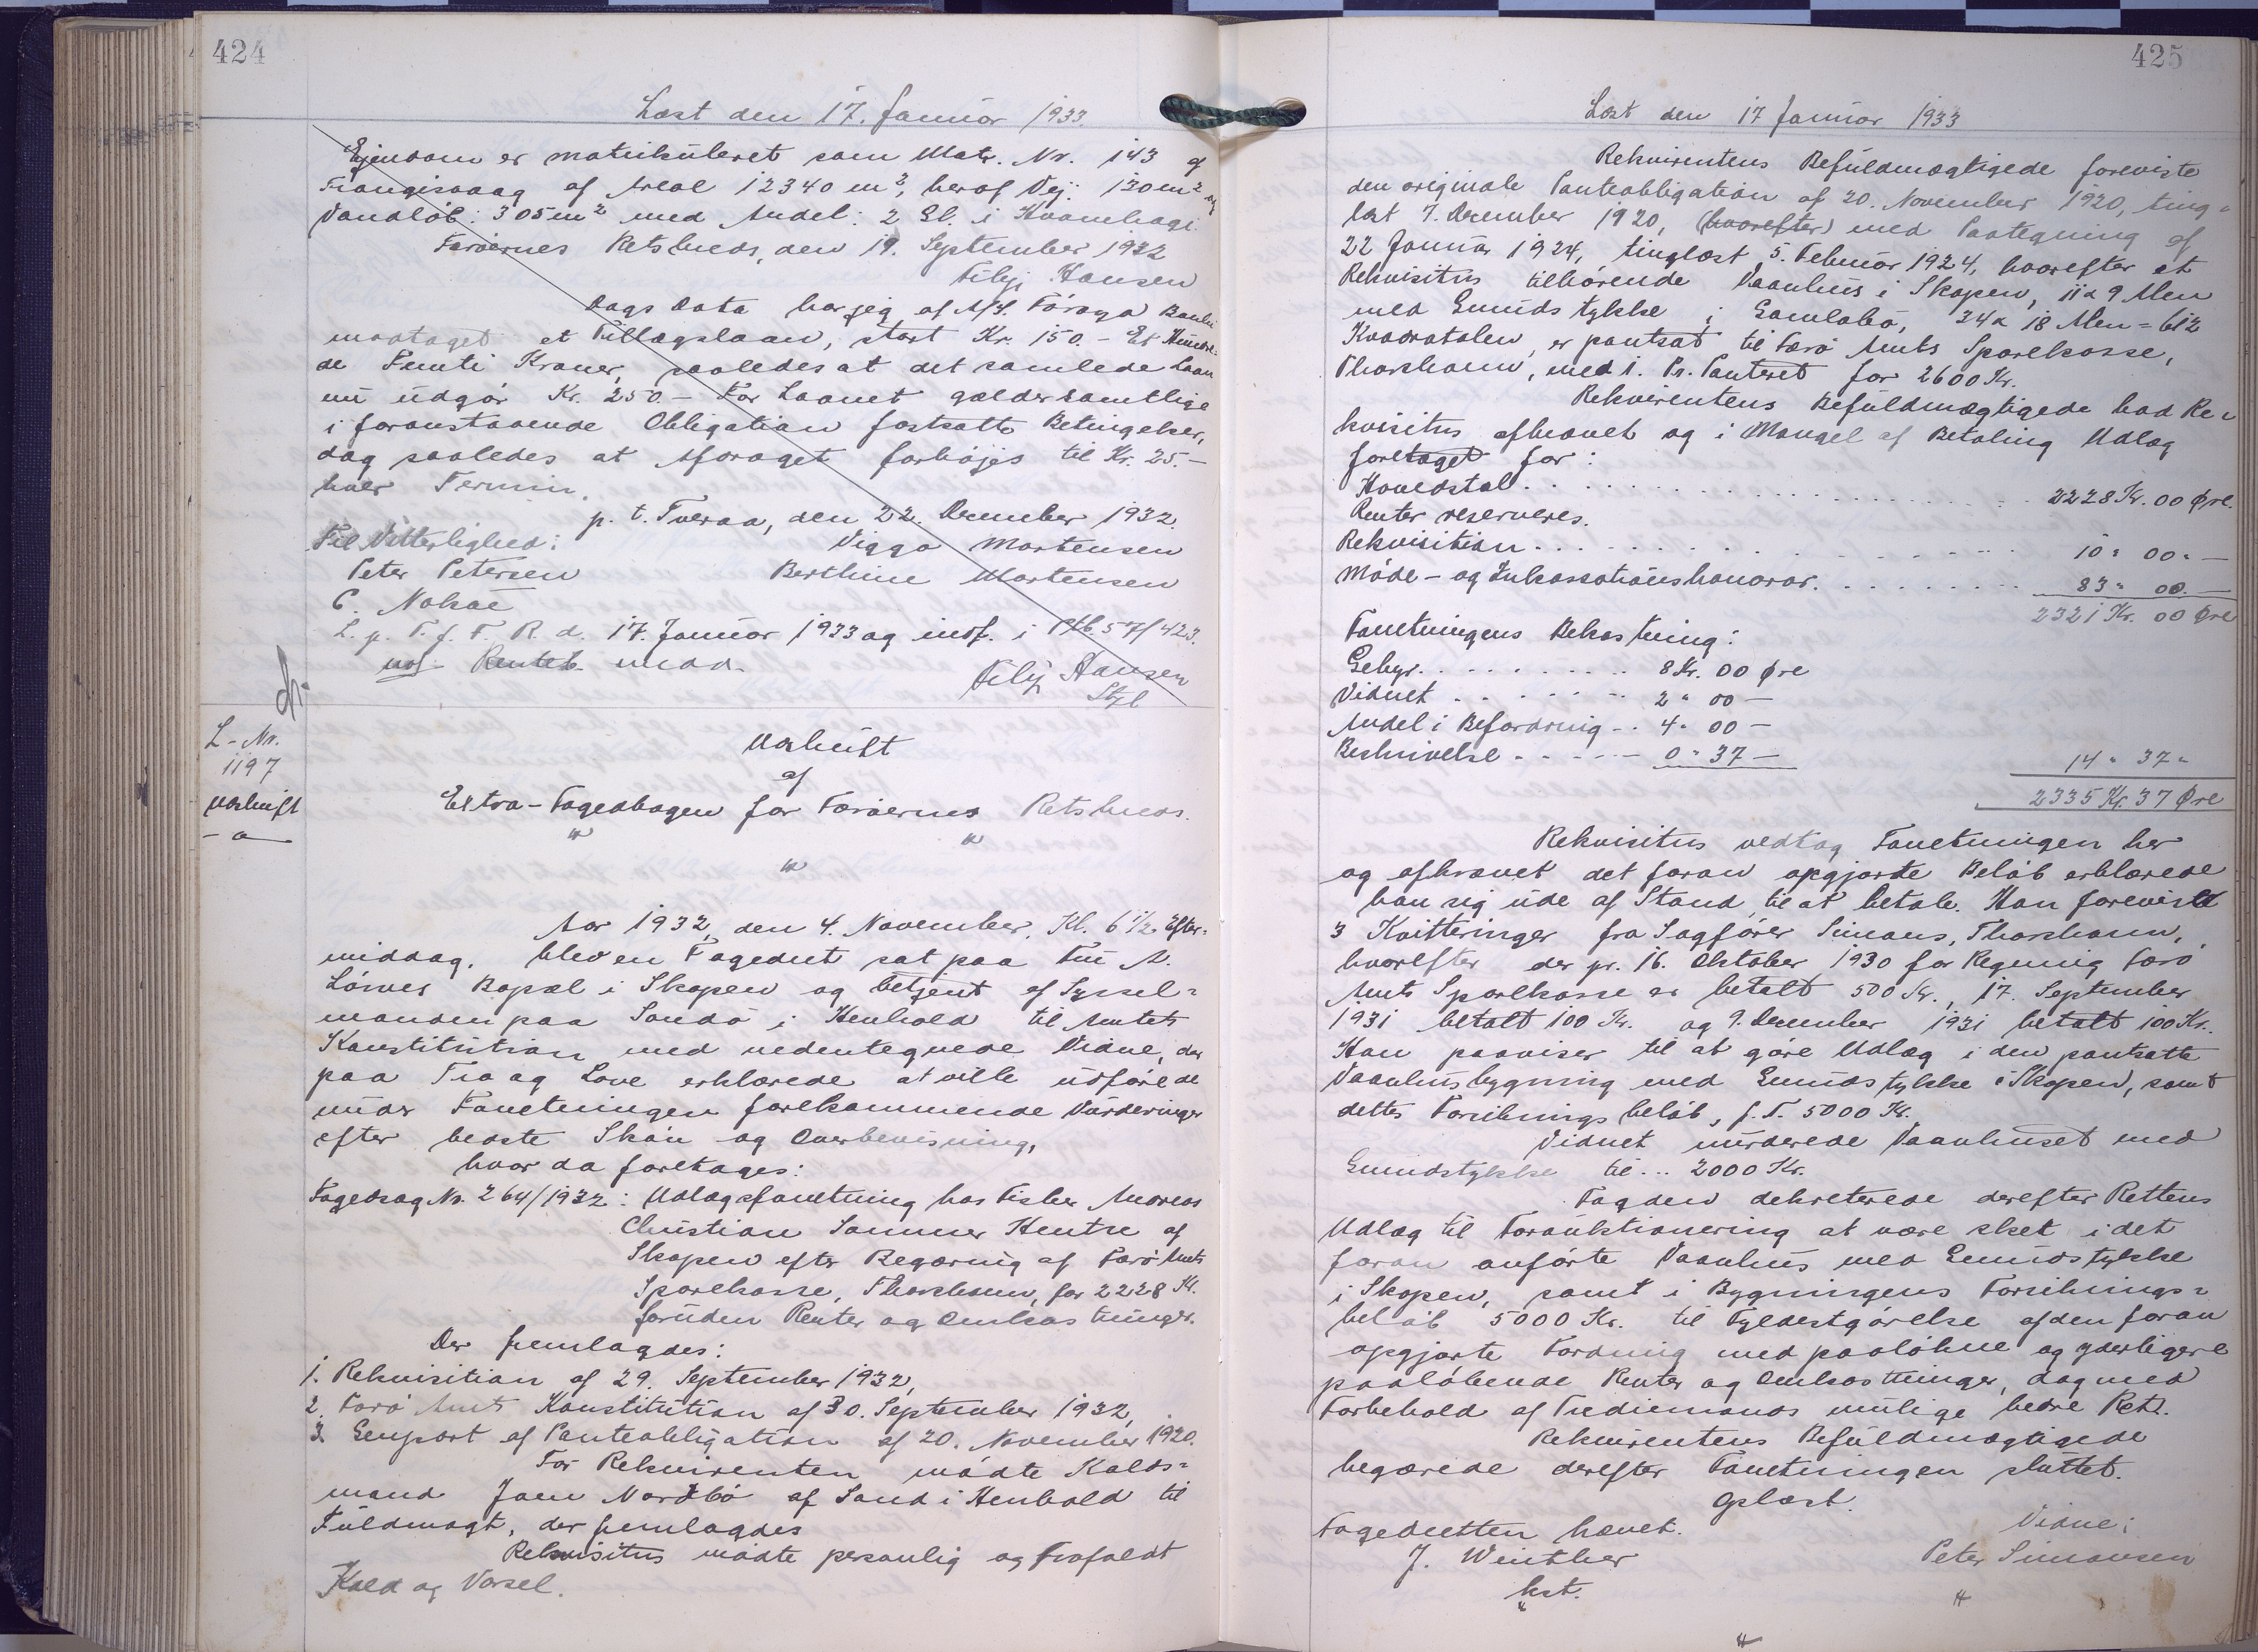 424
Læst den 17. Januar 1933.
Ejendom er matrikuleret som Matr. Nr. 143 af
Trangisvaag af Areal 12340 m², heraf Vej: 130 m² og
Vandløb: 305 m² med Andel: 2 El. i Kvamhagi.
Færøernes Retskreds, den 19. September 1932
Filip Hansen
Dags Dato har jeg af A/S. Føroya Banki
modtaget et Tillægslaan, stort Kr. 150.- Et Hundre-
de Femti Kroner, saaledes at det samlede Laan
nu udgør Kr. 250.- For Laanet gælder samtlige
i foranstaaende Obligation fastsatte Betingelser,
dog saaledes at Afdraget forhøjes til Kr. 25.-
hver Termin.
p. t. Tveraa, den 22. December 1932.
Til Vitterlighed:
Viggo Mortensen
Peter Petersen
Berthine Mortensen
C. Nolsøe
L. p. T. f. F. R. d. 17. Januar 1933 og indf. i Ptb. 57/423.
Filip Hansen
Stgf.
L-Nr.
1197
Udskrift
Udskrift
af
Extra-Fogedbogen for Færøernes Retskreds.
Aar 1932, den 4. November, Kl. 6 1/2 Efter-
middag, blev en Fogedret sat paa
Bopæl i Skopen og betjent af Syssel-
manden paa Sandø i Henhold til Amtets
Konstitution med nedentegnede Vidne, der
paa Tro og Love erklærede at ville udføre de
under Forretningen forekommende Vurderinger
efter bedste Skøn og Overbevisning,
hvor da foretages:
Fogedsag Nr. 264/1932: Udlægsforretning hos Fisker Andreas
Christian Sommer Hentze af
Skopen efter Begæring af Færø Amts
Sparekasse, Thorshavn, for 2228 Kr.
foruden Renter og Omkostninger.
Der fremlagdes:
1. Rekvisition af 29. September 1932,
2. Færø Amts Konstitution af 30. September 1932,
3. Genpart af Panteobligation af 20. November 1920.
For Rekvirenten mødte Kalds-
mand Joen Nordbø af Sand i Henhold til
Fuldmagt, der fremlagdes
Rekvisitus mødte personlig og frafaldt
Kald og Varsel.
425
Læst den 17 Januar 1933
Rekvirentens Befuldmægtigede foreviste
den originale Panteobligation af 20. November 1920, ting-
læst 7. December 1920, (hvorefter) med Paategning af
22 Januar 1924, tinglæst 5. Februar 1924, hvorefter et
Rekvisitus tilhørende Vaanhus i Skopen, 11 x 9 Alen
med Grundstykke i Gamlabø, 34 x 18 Alen = 612
Kvadratalen, er pantsat til Færø Amts Sparekasse,
Thorshavn, med 1. Pr. Panteret for 2600 Kr.
Rekvirentens Befuldmægtigede bad Re-
kvisitus afkrævet og i Mangel af Betaling Udlæg
foretaget for:
Hovedstol. . . . . . . . . 2228 Kr. 00 Øre.
Renter reserveres.
Rekvisition. . . . . . . . . 10 " 00 " —
Møde- og Inkassationshonorar. . . . . . 83 " 00. —
2321 Kr. 00 Øre
Forretningens Bekostning:
Gebyr. . . . . . . 8 Kr. 00 Øre
Vidnet . . . . . . 2 " 00 —
Andel i Befordring . . 4 " 00 —
Beskrivelse . . . . 0 " 37 —
14 " 37 "
2335 Kr. 37 Øre
Rekvisitus vedtog Forretningen her
og afkrævet det foran opgjorte Beløb erklærede
han sig ude af Stand til at betale. Han foreviste
3 Kvitteringer fra Sagfører Simons, Thorshavn,
hvorefter der pr. 16. Oktober 1930 for Regning Færø
Amts Sparekasse er betalt 500 Kr., 17. September
1931 betalt 100 Kr. og 9. December 1931 betalt 100 Kr.
Han paaviser til at gøre Udlæg i den pantsatte
Vaanhusbygning med Grundstykke i Skopen, samt
dettes Forsikringsbeløb, f. T. 5000 Kr.
Vidnet vurderede Vaanhuset med
Grundstykke til... 2000 Kr.
Fogden dekreterede derefter Rettens
Udlæg til Forauktionering at være sket i det
foran anførte Vaanhus med Grundstykke
i Skopen, samt i Bygningens Forsikrings-
beløb 5000 Kr. til Fyldestgørelse af den foran
opgjorte Fordring med paaløbne og yderligere
paaløbende Renter og Omkostninger, dog med
Forbehold af Trediemands mulige bedre Ret.
Rekvirentens Befuldmægtigede
begærede derefter Forretningen sluttet.
Oplæst.
Fogedretten hævet.
Vidne:
J. Winther
Peter Simonsen
kst.